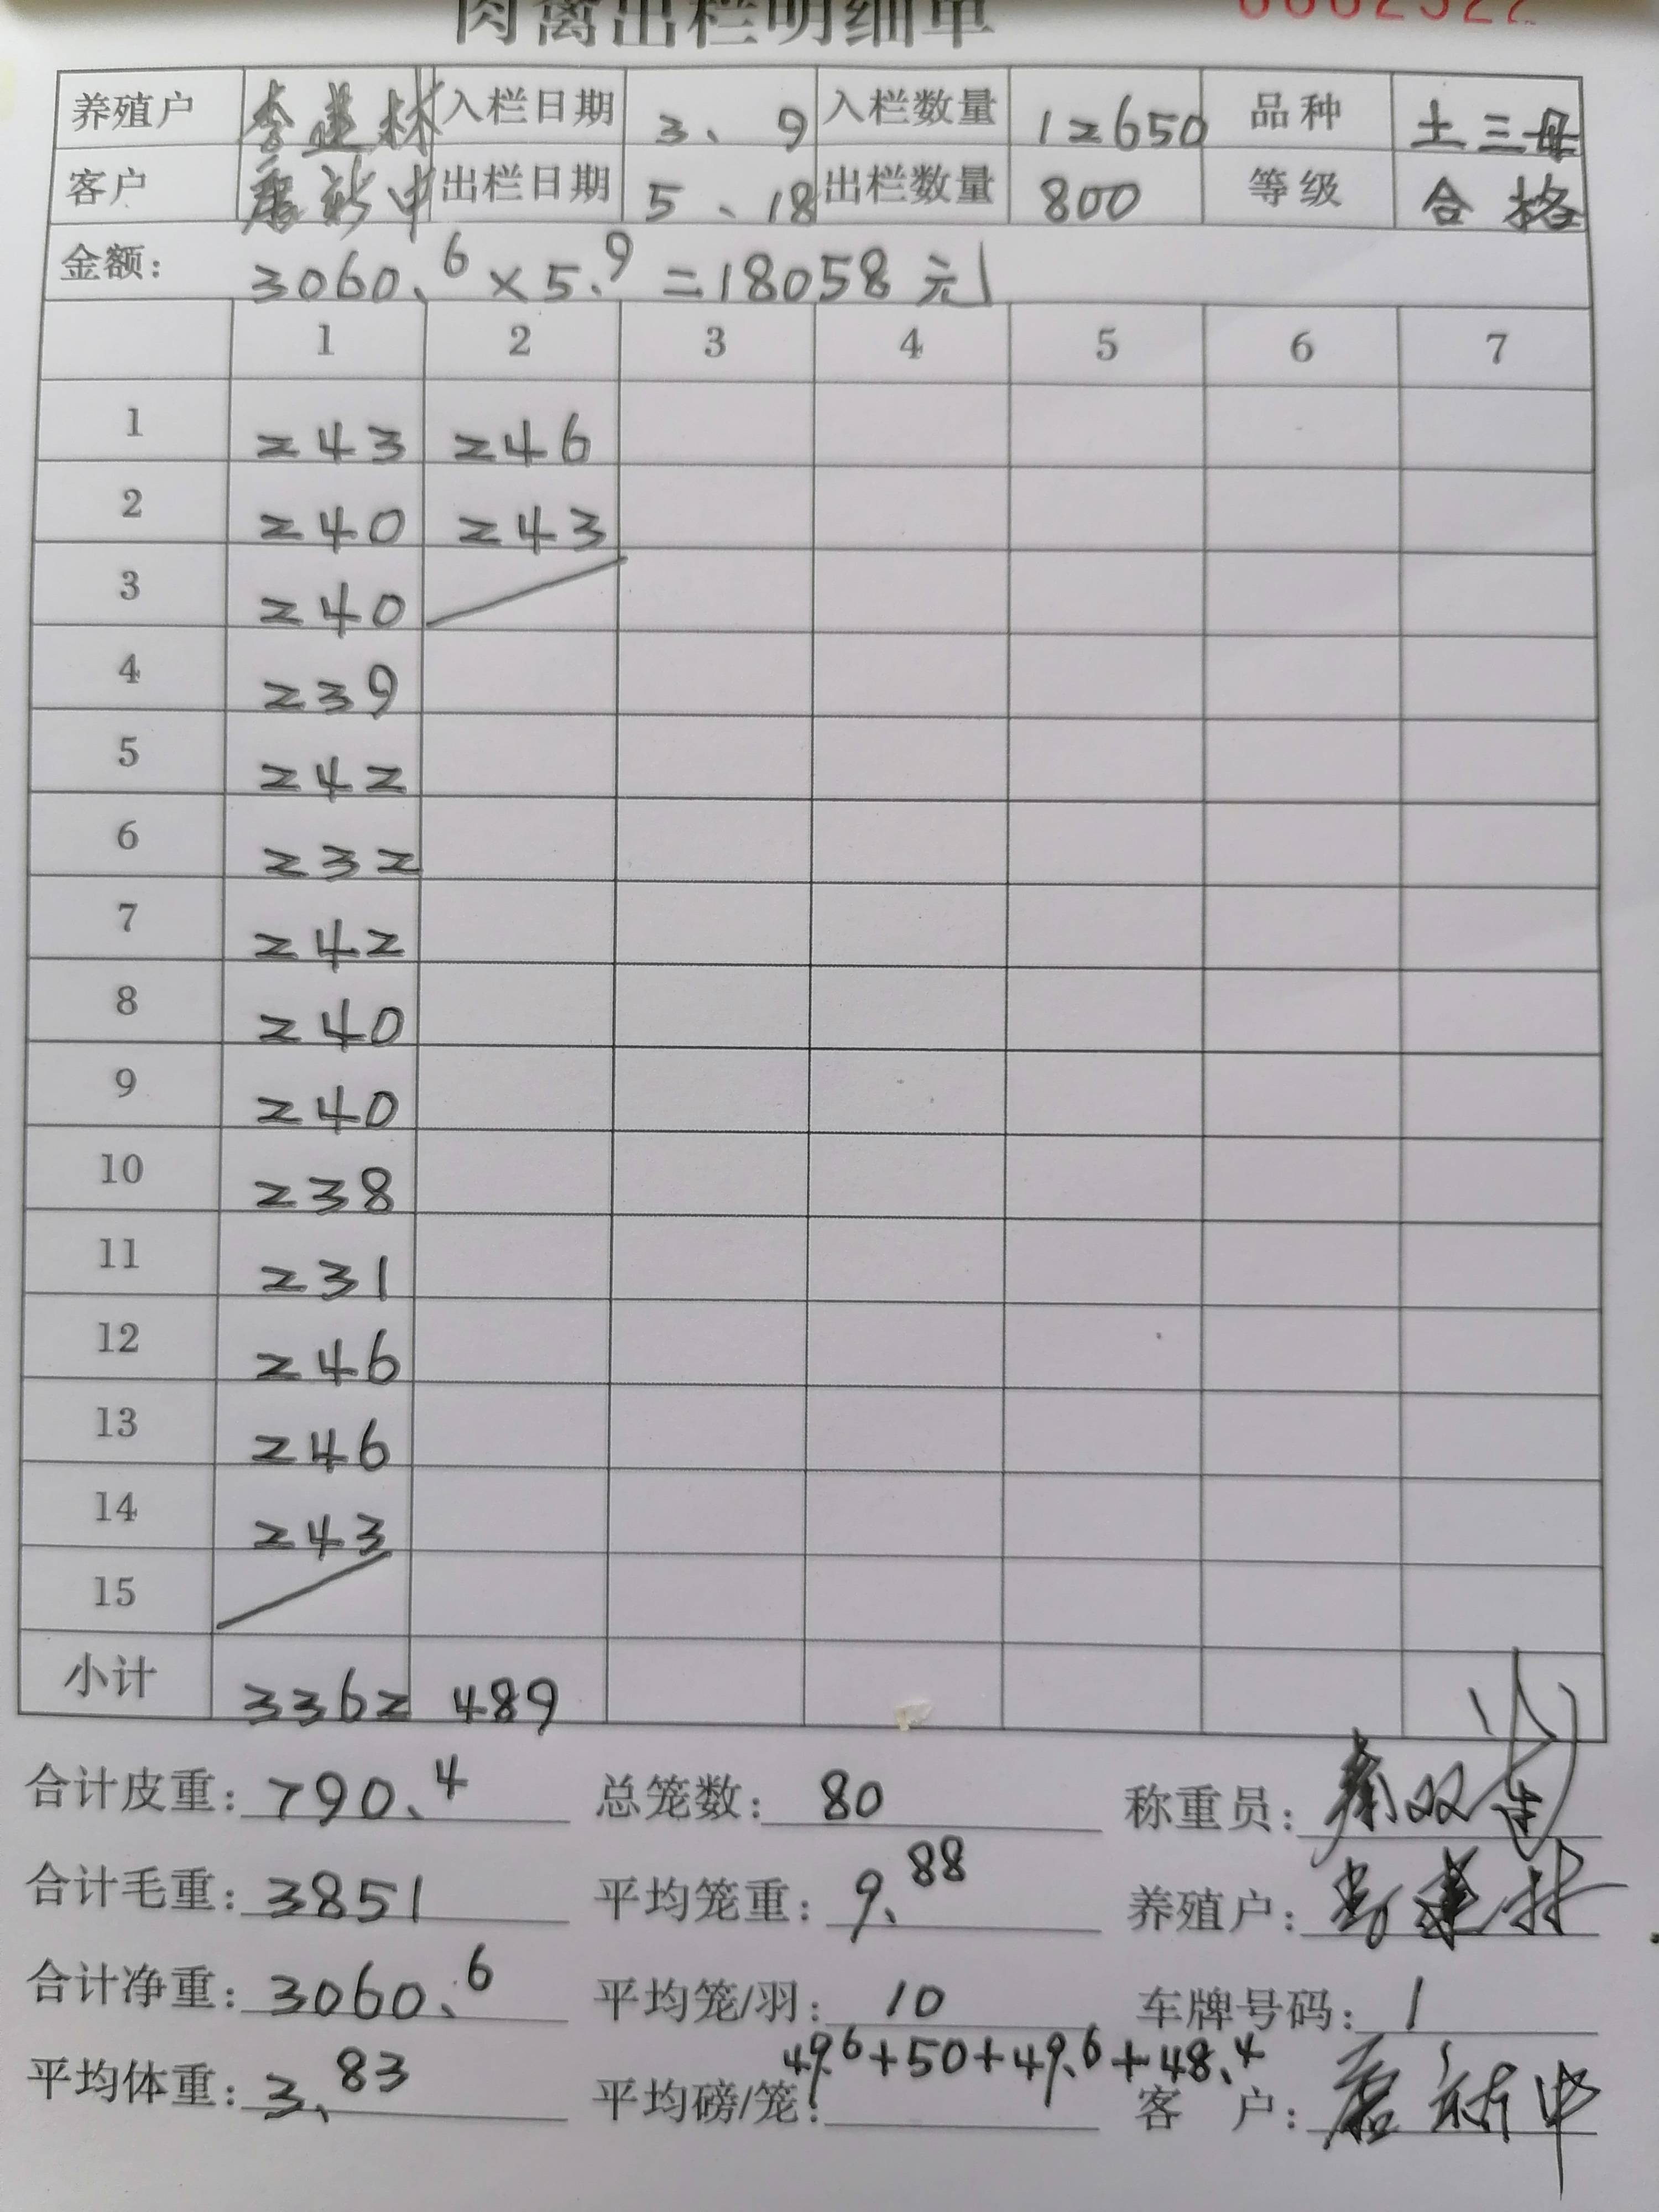 肉禽出栏明细单 0002522
养殖户 李建林 入栏日期 3、9 入栏数量 12650 品种 土三母
客户 唐新中 出栏日期 5、18 出栏数量 800 等级 合格
金额: 3060.6×5.9=18058元
1 2 3 4 5 6 7
1 243 246
2 240 243
3 240
4 239
5 242
6 232
7 242
8 240
9 240
10 238
11 231
12 246
13 246
14 243
15
小计 3362 489
合计皮重: 790.4 总笼数: 80 称重员:
合计毛重: 3851 平均笼重: 9.88 养殖户: 李建林
合计净重: 3060.6 平均笼/羽: 10 车牌号码: 1
平均体重: 3.83 平均磅/笼: 49.6+50+49.6+48.4 客户: 唐新中